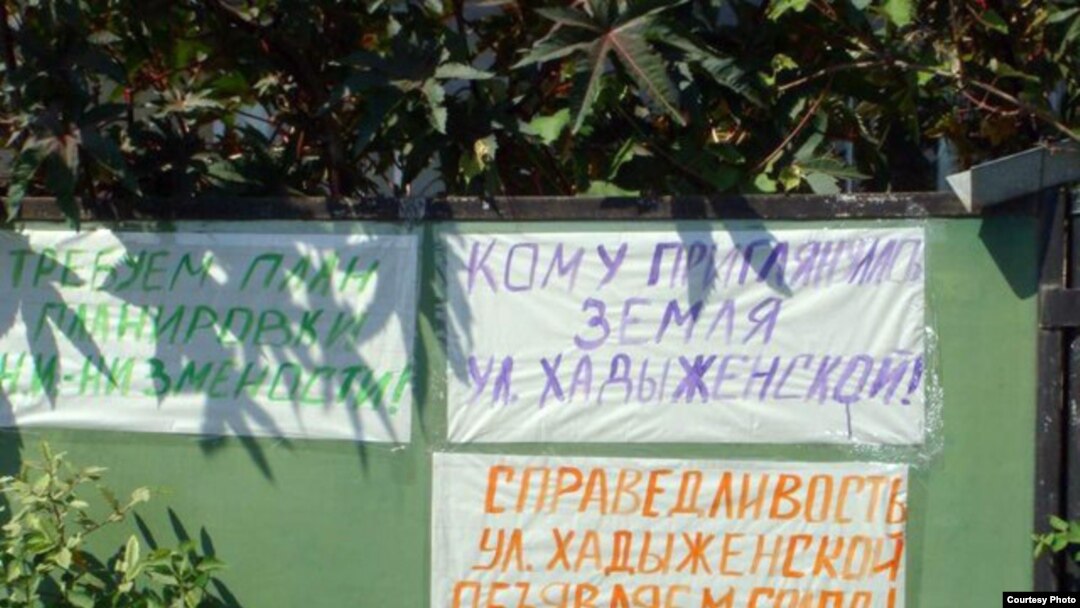 ТРЕБУЕМ ПЛАН
ПЛАНИРОВКИ
НИ-НИЗМЕНОСТИ!
КОМУ ПРИГЛЯНУЛАСЬ
ЗЕМЛЯ
УЛ. ХАДЫЖЕНСКОЙ!
СПРАВЕДЛИВОСТЬ
УЛ. ХАДЫЖЕНСКОЙ
ОБЪЯВЛЯЕМ
Courtesy Photo